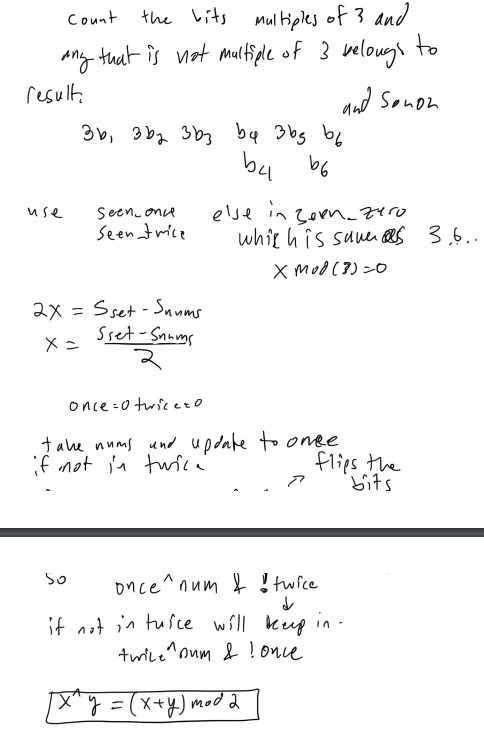 count the bits multiples of 3 and
any that is not multiple of 3 belongs to
result.
and so on
3b1 3b2 3b3 b4 3b5 b6
b4 b6
use seen_once else in seen_zero
seen_twice which is same as 3,6..
x mod(3)=0
2x = Sset - Snums
x = Sset - Snums
2
once=0 twice=0
take nums and update to once
if not in twice flips the
bits
so once^num & !twice
if not in twice will keep in.
twice^num & !once
x^y = (x+y) mod 2